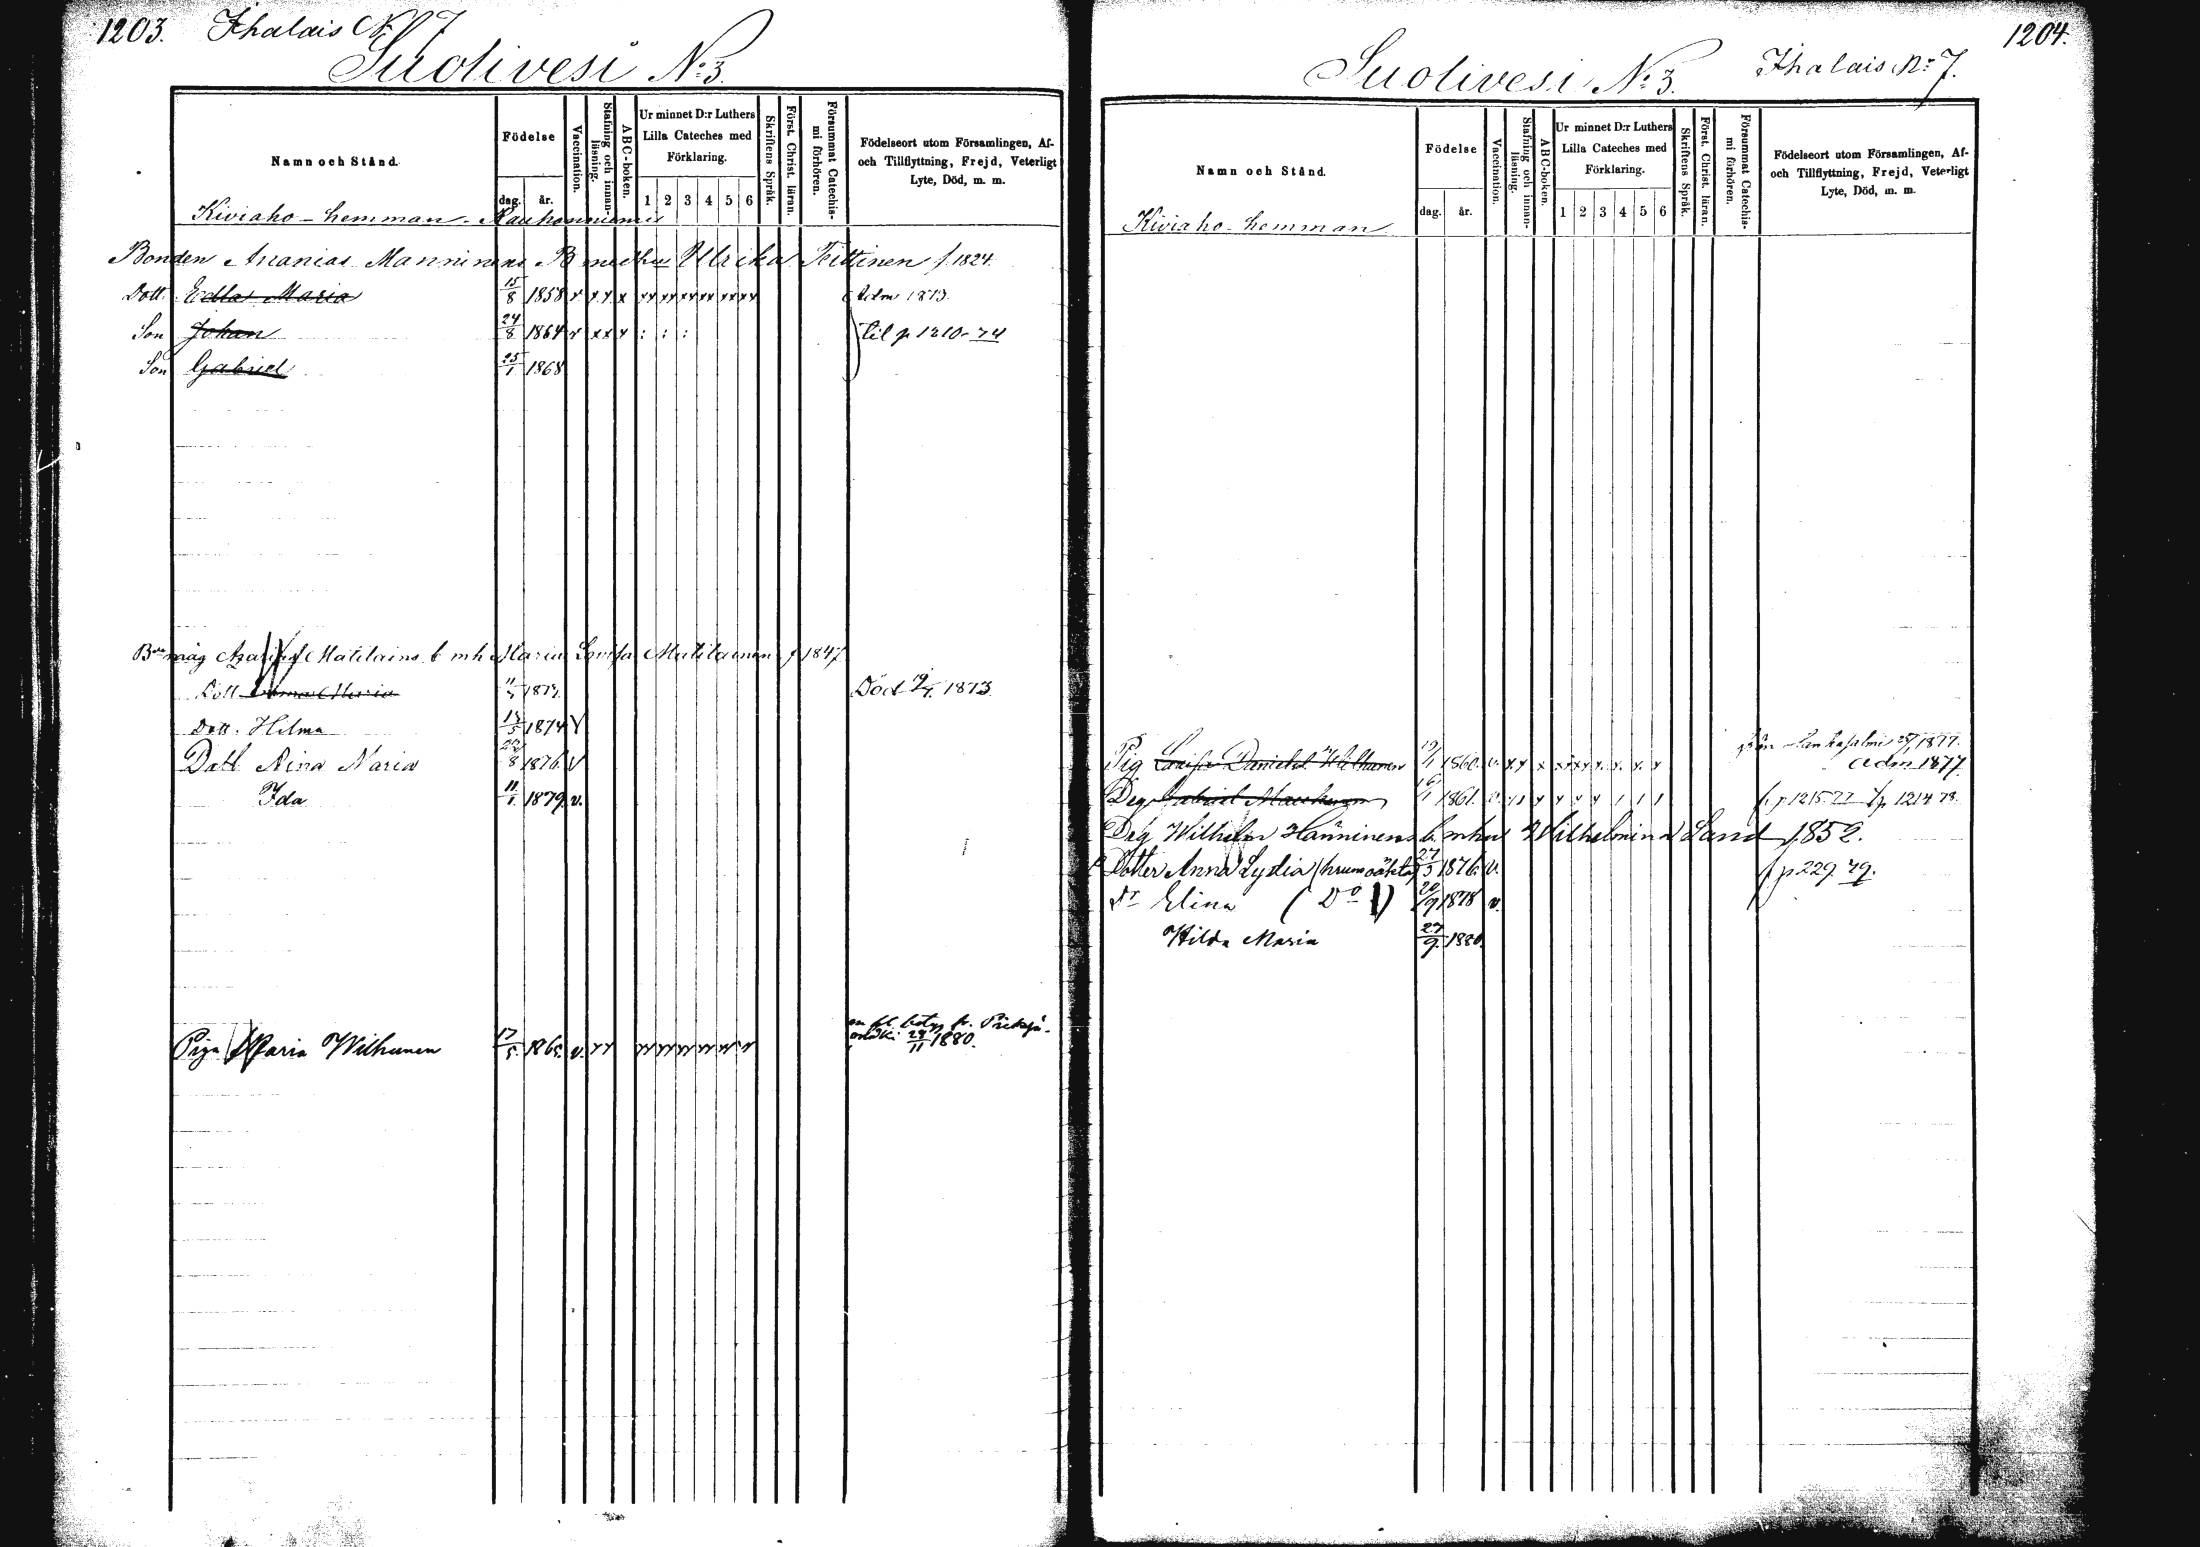 1203. Ihalais No 7
Suolivesi No 3.
Namn och Stånd.
Födelse
dag. år.
Vaccination.
Stafning och innanläsning.
ABC-boken.
Ur minnet D:r Luthers
Lilla Cateches med
Förklaring.
1 2 3 4 5 6
Skriftens Språk.
Först. Christ. läran.
Försummat Catechismi förhören.
Födelseort utom Församlingen, Af-
och Tillflyttning, Frejd, Veterligt
Lyte, Död, m. m.
Kiviaho-hemman - Rauhanniemis
Bonden Ananias Manninens B medhu Ulrika Tiittinen f 1824.
Dott. Edla Maria 15/8 1858 v xx x xx xx xx xx xx xx Adm 1873.
Son Johan 24/8 1864 v xx x : : : til p 1210-74
Son Gabriel 25/1 1868
måg Matilains b mh Maria Lovisa Matilainen f 1847
Dött Maria 1873 Död 19/4 1873
Dott. Hilma 13/5 1874 v
Dott Aina Maria 8 1876 v
Ida 11/1 1879 v.
Piga Maria Wilhunen 17/5 1865 v. xx xx xx xx xx xx xx
betyg fr. Pieksä-
29/11 1880.
1204.
Suolivesi No 3. Ihalais No 7.
Namn och Stånd.
Födelse
dag. år.
Vaccination.
Stafning och innanläsning.
ABC-boken.
Ur minnet D:r Luthers
Lilla Cateches med
Förklaring.
1 2 3 4 5 6
Skriftens Språk.
Först. Christ. läran.
Försummat Catechismi förhören.
Födelseort utom Församlingen, Af-
och Tillflyttning, Frejd, Veterligt
Lyte, Död, m. m.
Kiviaho-hemman
från Kankasalmi 1877.
Pig Lovisa Danielsd. 1860. v. xx x adm 1877
Drg Gabriel 1861. v. f. p 1215.77 t p 1214 78.
Drg Wilhelm Hänninens b. mhu Wilhelmina Sand f. 1852.
Dotter Anna Lydia 27/5 1876 v. f p 229 79.
Dr Elina (Do) 20/9 1878 v.
Hilda Maria 27/9 1880.